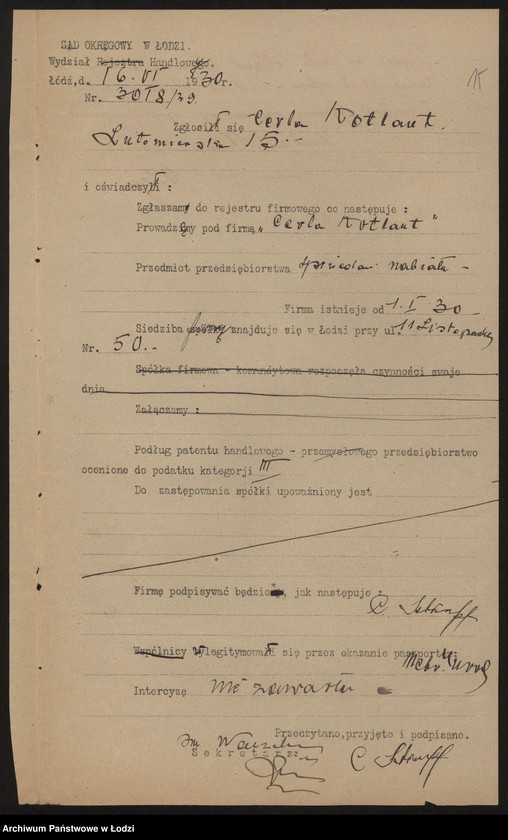 SĄD OKRĘGOWY W ŁODZI.
Wydział Rejestru Handlowego.
Łódź,d. 16.VI 1930r.
Nr. 3018/39
15
Zgłosił się Cerla Kotlant.
Lutomierska 15.-
i oświadczył:
Zgłaszamy do rejestru firmowego co następuje:
Prowadzę pod firmą "Cerla Kotlant"
Przedmiot przedsiębiorstwa sprzedaż nabiału -
Firma istnieje od 1.I 30 -
Siedziba firmy znajduje się w Łodzi przy ul. 11 Listopada
Nr. 50.-
Spółka firmowa - komandytowa rozpoczęła czynności swoje
dnia
Załączamy :
Podług patentu handlowego - przemysłowego przedsiębiorstwo
ocenione do podatku kategorji III
Do zastępowania spółki upoważniony jest
Firmę podpisywać będzie, jak następuje
C.
Wspólnicy wylegitymowali się przez okazanie paszportu:
Intercyzę nie zawarta
Przeczytano,przyjęto i podpisano.
Sekretarz:
C.
Archiwum Państwowe w Łodzi